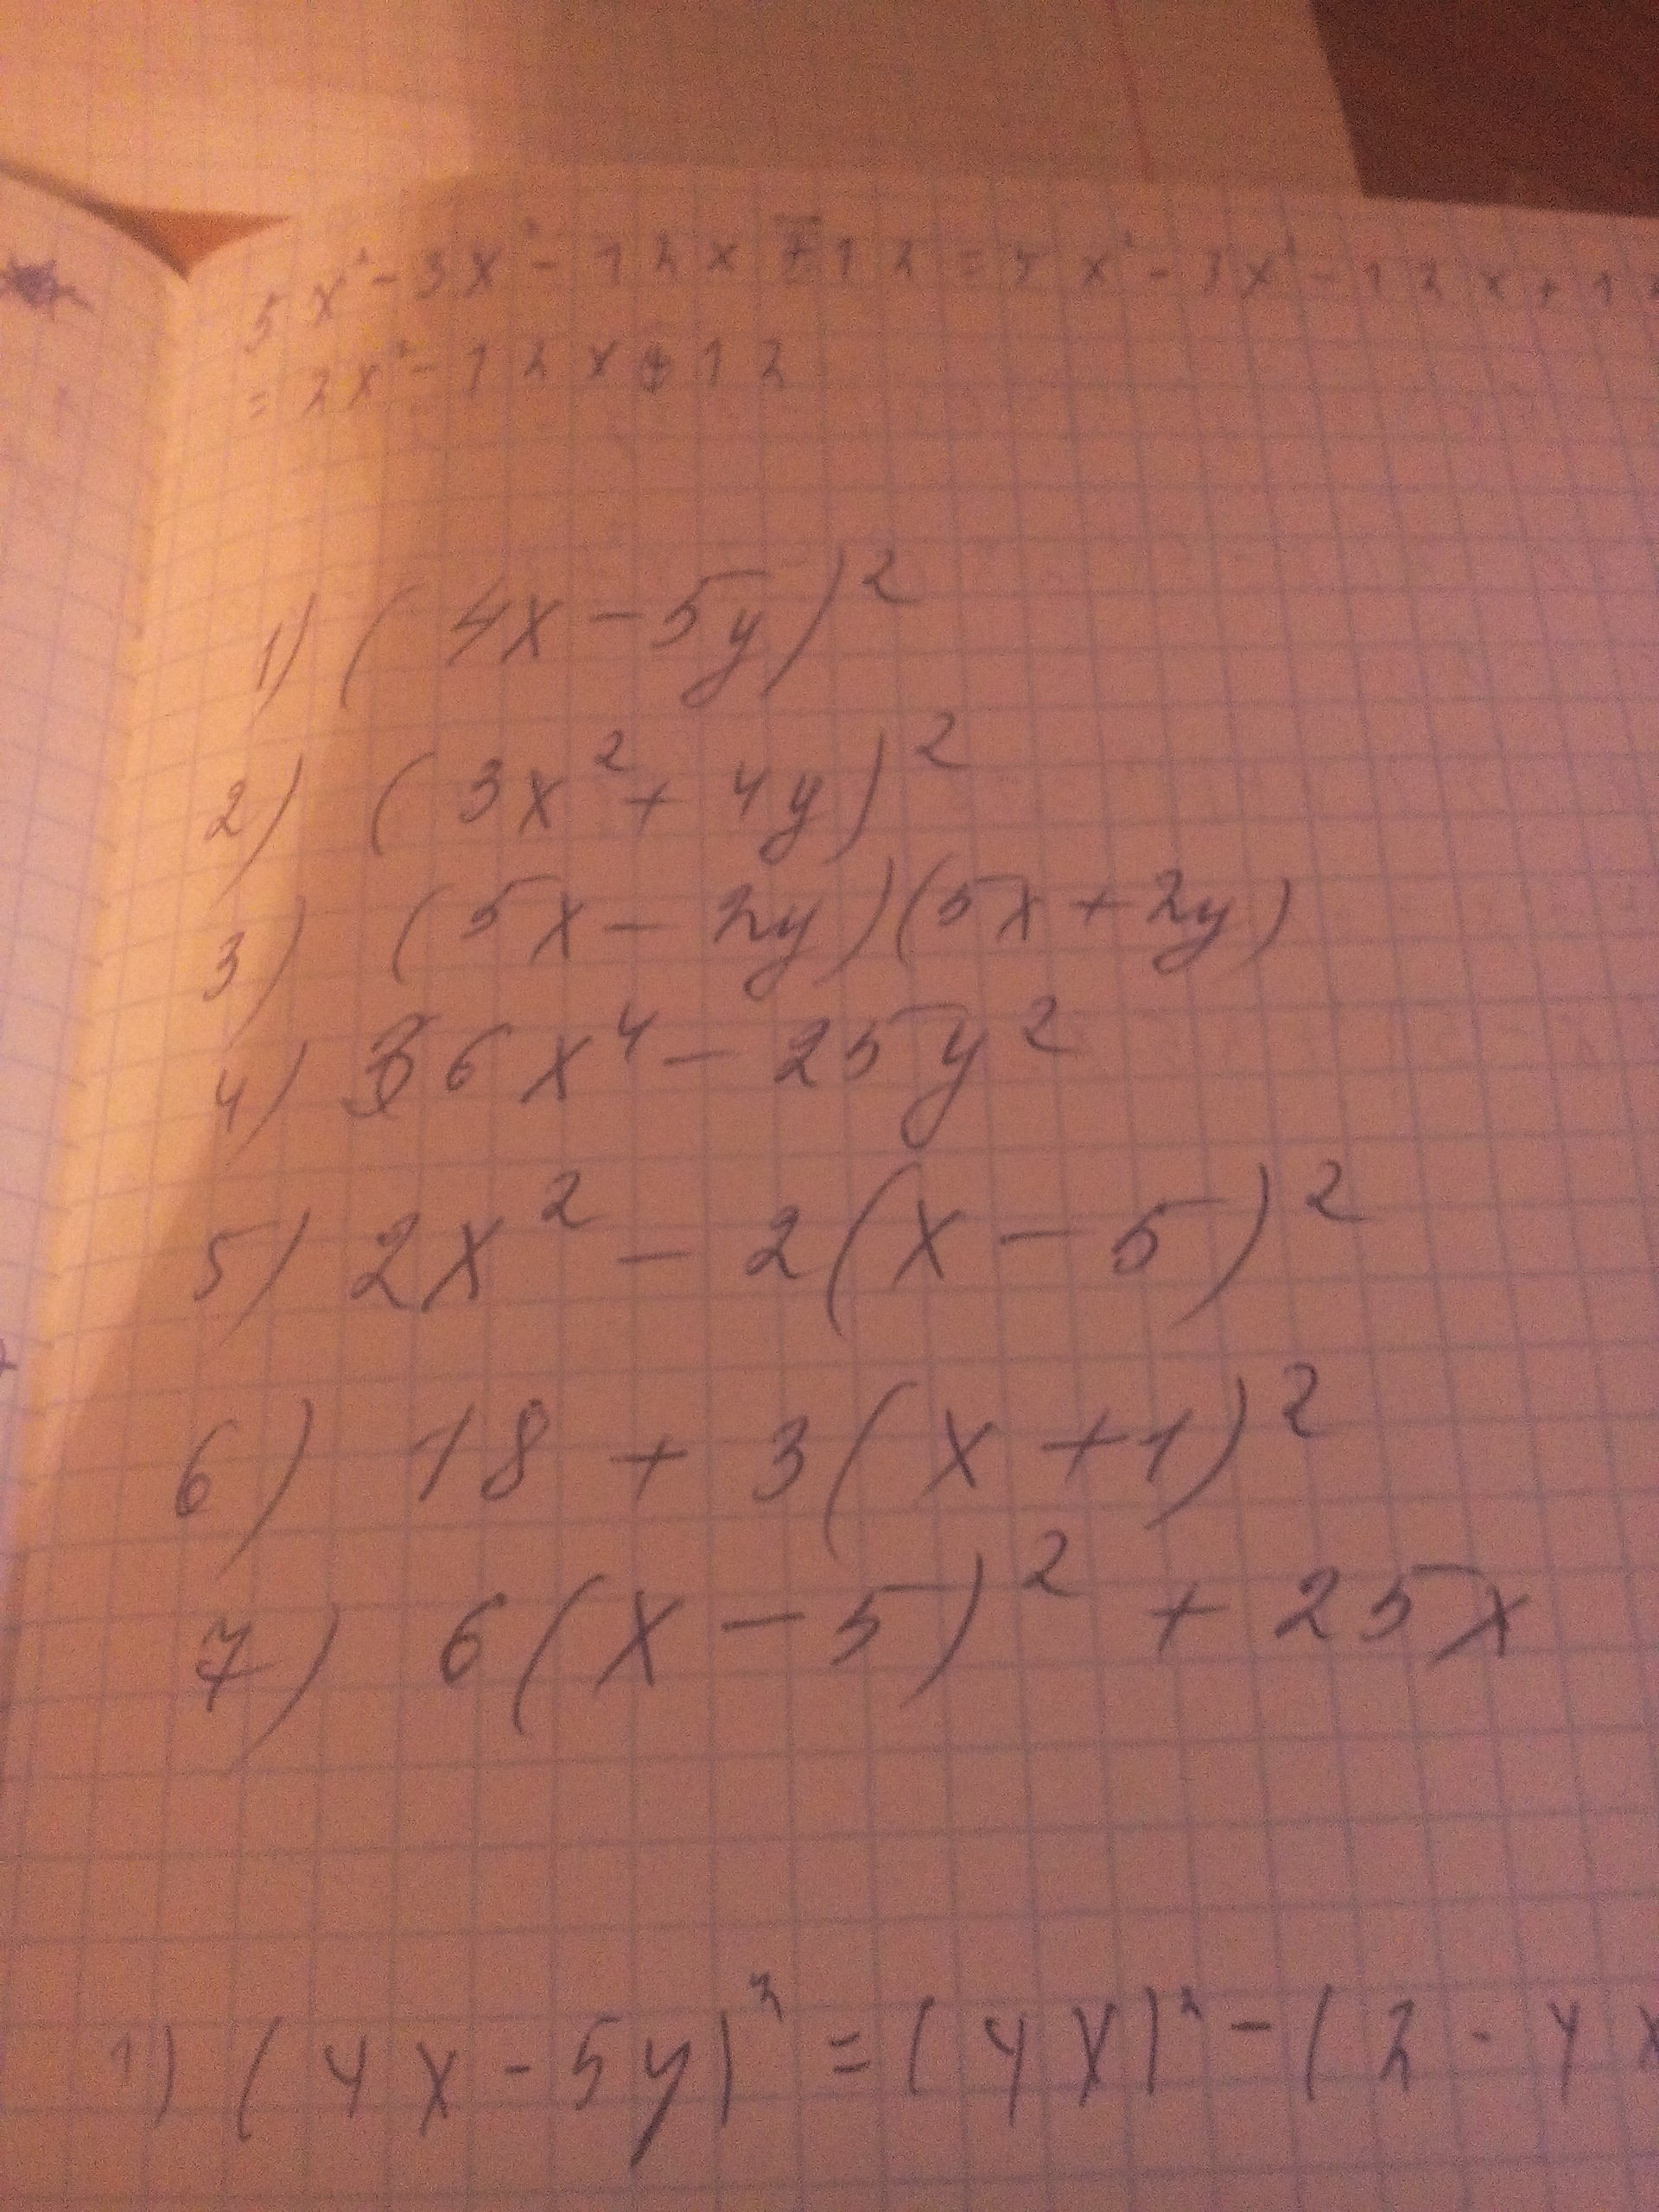 5x² - 3x² - 12x + 12 = 5x² - 3x² - 12x + 12
= 2x² - 12x + 12
1) (4x - 5y)²
2) (3x² + 4y)²
3) (5x - 2y)(5x + 2y)
4) 36x⁴ - 25y²
5) 2x² - 2(x - 5)²
6) 18 + 3(x + 1)²
7) 6(x - 5)² + 25x
1) (4x - 5y)² = (4x)² - (2 · 4x